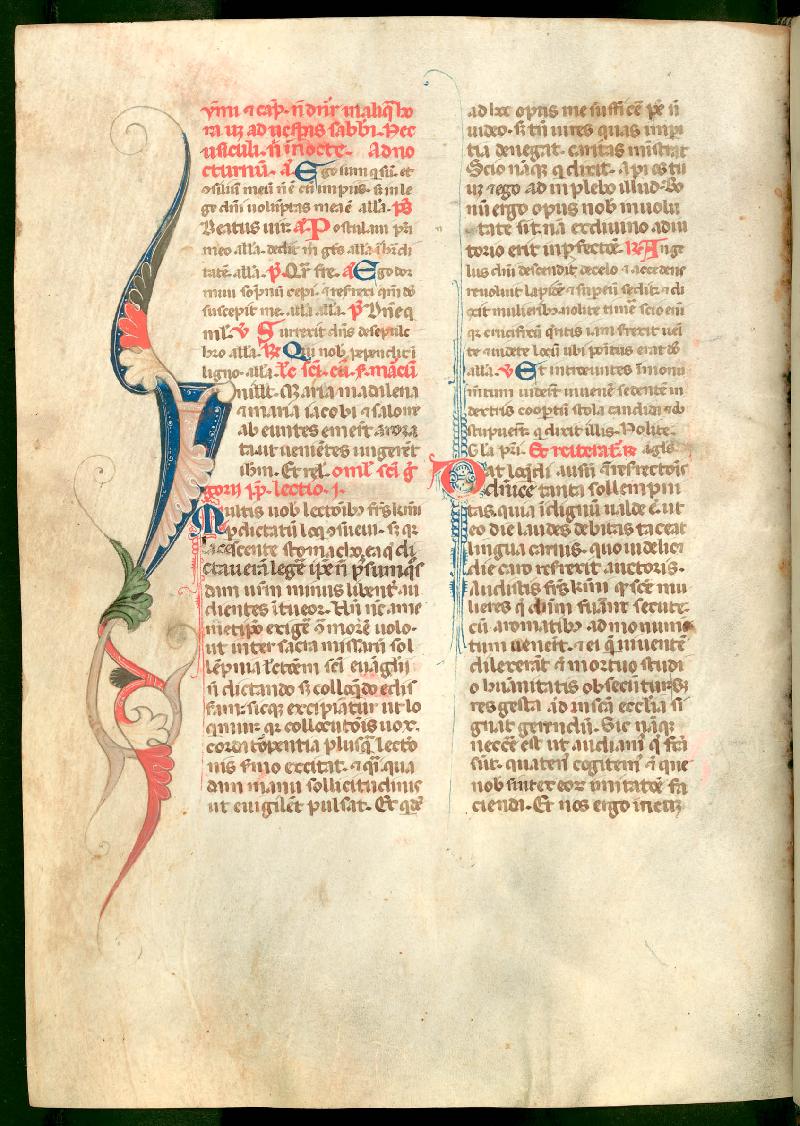 ymni ⁊ cap̄. n̄ dn̄r in aliq̄ ho
ra uz ad uesp̄as sabbi. Nec
uersiculi. n̄ i nocte. Ad no
cturnū. a. Ego sum q̄ sū. et
ↄsiliū meū n̄ ē cū impiis. s; in le
ge dn̄i uoluptas mea ē alła. ps̄
Beatus uir. a. Postulaui pr̄i
meo alła. dedit m̄ gētes alła
tatē. alła. p̄. Qr̄ fre. a. Ego dor
miui sopnū cepi. ⁊ resrexi qm̄ dn̄s
suscepit me. alła alła. p̄. Dn̄e q
ml̄. v̄. Surrexit dn̄s de sepulc
hro alła. R̄. Qui nob̄ pependit i
ligno. alła. Łc̄. sc̄i. eu. s. marcū
n illo t̄. Maria madalena
⁊ maria iacobi ⁊ salome
ab euntes emerūt aroma
ta ut uenientes ungerēt
ihm̄. Et rel̄. oml̄. sc̄i ḡ
gorii pp̄. lectio. i.
Multis uob̄ lectioib; frs̄ kmī
p dictatū loq̄ ↄsueui. s; qr̄
lacescente stomacho, ea q̄ di
ctauerā legē ip̄e n̄ p̄sum. q̄s
dam ur̄m minus libent̄ au
dientes ītueor. Vn̄ nc̄ a me
metipo exigē ↄ morē uolo.
ut inter sacra missarū sol
lēpnia lectōem sc̄i euāglii
n̄ dictando s; colloq̄ndo edis
sam. sicq; excipiatur ut lo
qmur. qr̄ collocutōis uox.
corda torpentia plusq̄ lecto
nis s̄mo excitat. ⁊ q̄i. qua
dam manu sollicitudinis
ut euigilēt pulsat. Et qd̄e
ad hoc opus me sufficē pe n̄
uideo. s; tn̄ uires quas impi
tia denegat. caritas mīstrat
Scio nāq; q̄ dixit. api os tū
uz ⁊ ego ad inplebo illud. Bo
nū ergo opus nob̄ in uolū
tate sit. nā ex diuino adiu
torio erit in p̄fectōe. R̄. Ange
lus dn̄i descendit de celo ⁊ accedens
reuoluit lapidē ⁊ sup eū sedit. ⁊ di
xit mulieribȝ nolite timē scio eīm
qr̄ crucifixū q̄ritis iam srexit ueni
te ⁊ uidete locū ubi positus erat dn̄s
alła. v̄. Et introeuntes ī monu
mētum uiderūt iuuenē sedentē in
dextris coopertū stola candida ⁊ ob
stupuerūt. q̄ dixit illis. Nolite.
Gl̄a p̄ri. Et reiterat̄ R̄. agls̄.
Dat loq̄ndi ausū a resrectōis
dn̄ice tanta sollempni
tas. qua īdignū ualde ē. ut
eo die laudes debitas taceat
lingua carnis. quo uidelicet
die caro resrexit auctoris.
Audistis frs̄ kmī q̄ sc̄e mu
lieres q̄ dn̄m fuāant secute.
cū aromatibȝ ad monumē
tum uenerūt. ⁊ ei q̄ uiuentē
dilexerāt ⁊ mortuo studi
o humanitatis obsecūtur. Sȝ
res gesta. ad in sc̄a ecclia si
gnat gerendū. Sic nāq;
necc̄e est ut audiam̄ q̄ fc̄a
sūt. quatenꝰ cogitem̄ ⁊ que
nob̄ sint ex eor imitatōe fa
cienda. Et nos ergo in eum